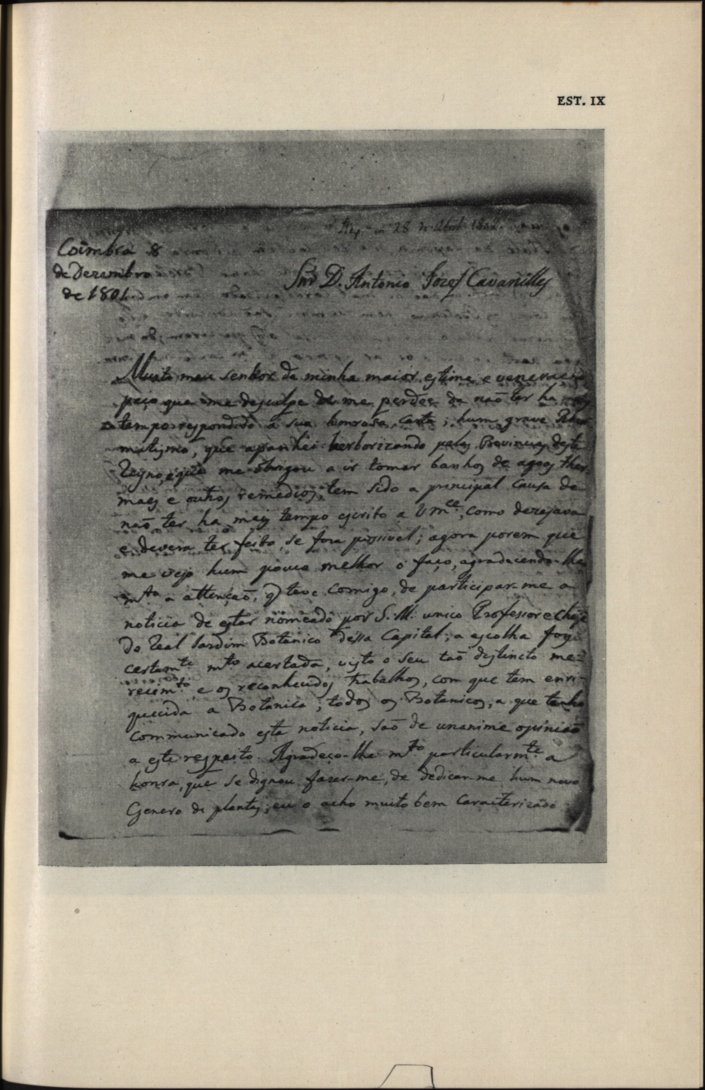 EST. IX
28 de Abril 1802
Coimbra 8
de Dezembro
de 1801.
Snr. D. Antonio Jozef Cavanilles
Muito meu senhor da minha maior estima e veneração
peço que me desculpe de me perder de não ter ha mais
tempo respondido á sua honrosa Carta; hum grave Rheu
matismo, que apanhei herborizando pelas Provincias deste
Reyno, e que me obrigou a ir tomar banhos de agoas ther
maes e outros remedios, tem sido a principal causa de
não ter ha mais tempo escrito a Vmce, como dezejava
e devera ter feito, se fora possivel; agora porem que
me vejo hum pouco melhor o faço, agradecendo-lhe
mto a attenção, q teve comigo, de participar-me a
noticia de estar nomeado por S. M. unico Professor e Chefe
do Real Jardim Botanico dessa Capital; a escolha foy
certamte mto acertada, visto o seu tão distincto me-
recimto e os reconhecidos trabalhos, com que tem enri-
quecida a Botanica; todos os Botanicos, a que tenho
communicado esta noticia, são de unanime opinião
a este respeito. Agradeço-lhe mto particularmte a
honra, que se dignou fazer-me, de dedicar-me hum novo
Genero de plantas; eu o acho muito bem caracterizado